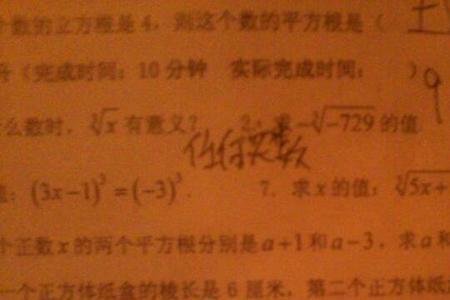 个数的立方根是4,则这个数的平方根是(
升(完成时间:10分钟 实际完成时间: )
么数时,∛x有意义? 2.求-∛-729的值
任何实数
9
值:(3x-1)³=(-3)³. 7.求x的值:∛5x+
个正数x的两个平方根分别是a+1和a-3,求a和
一个正方体纸盒的棱长是6厘米,第二个正方体纸